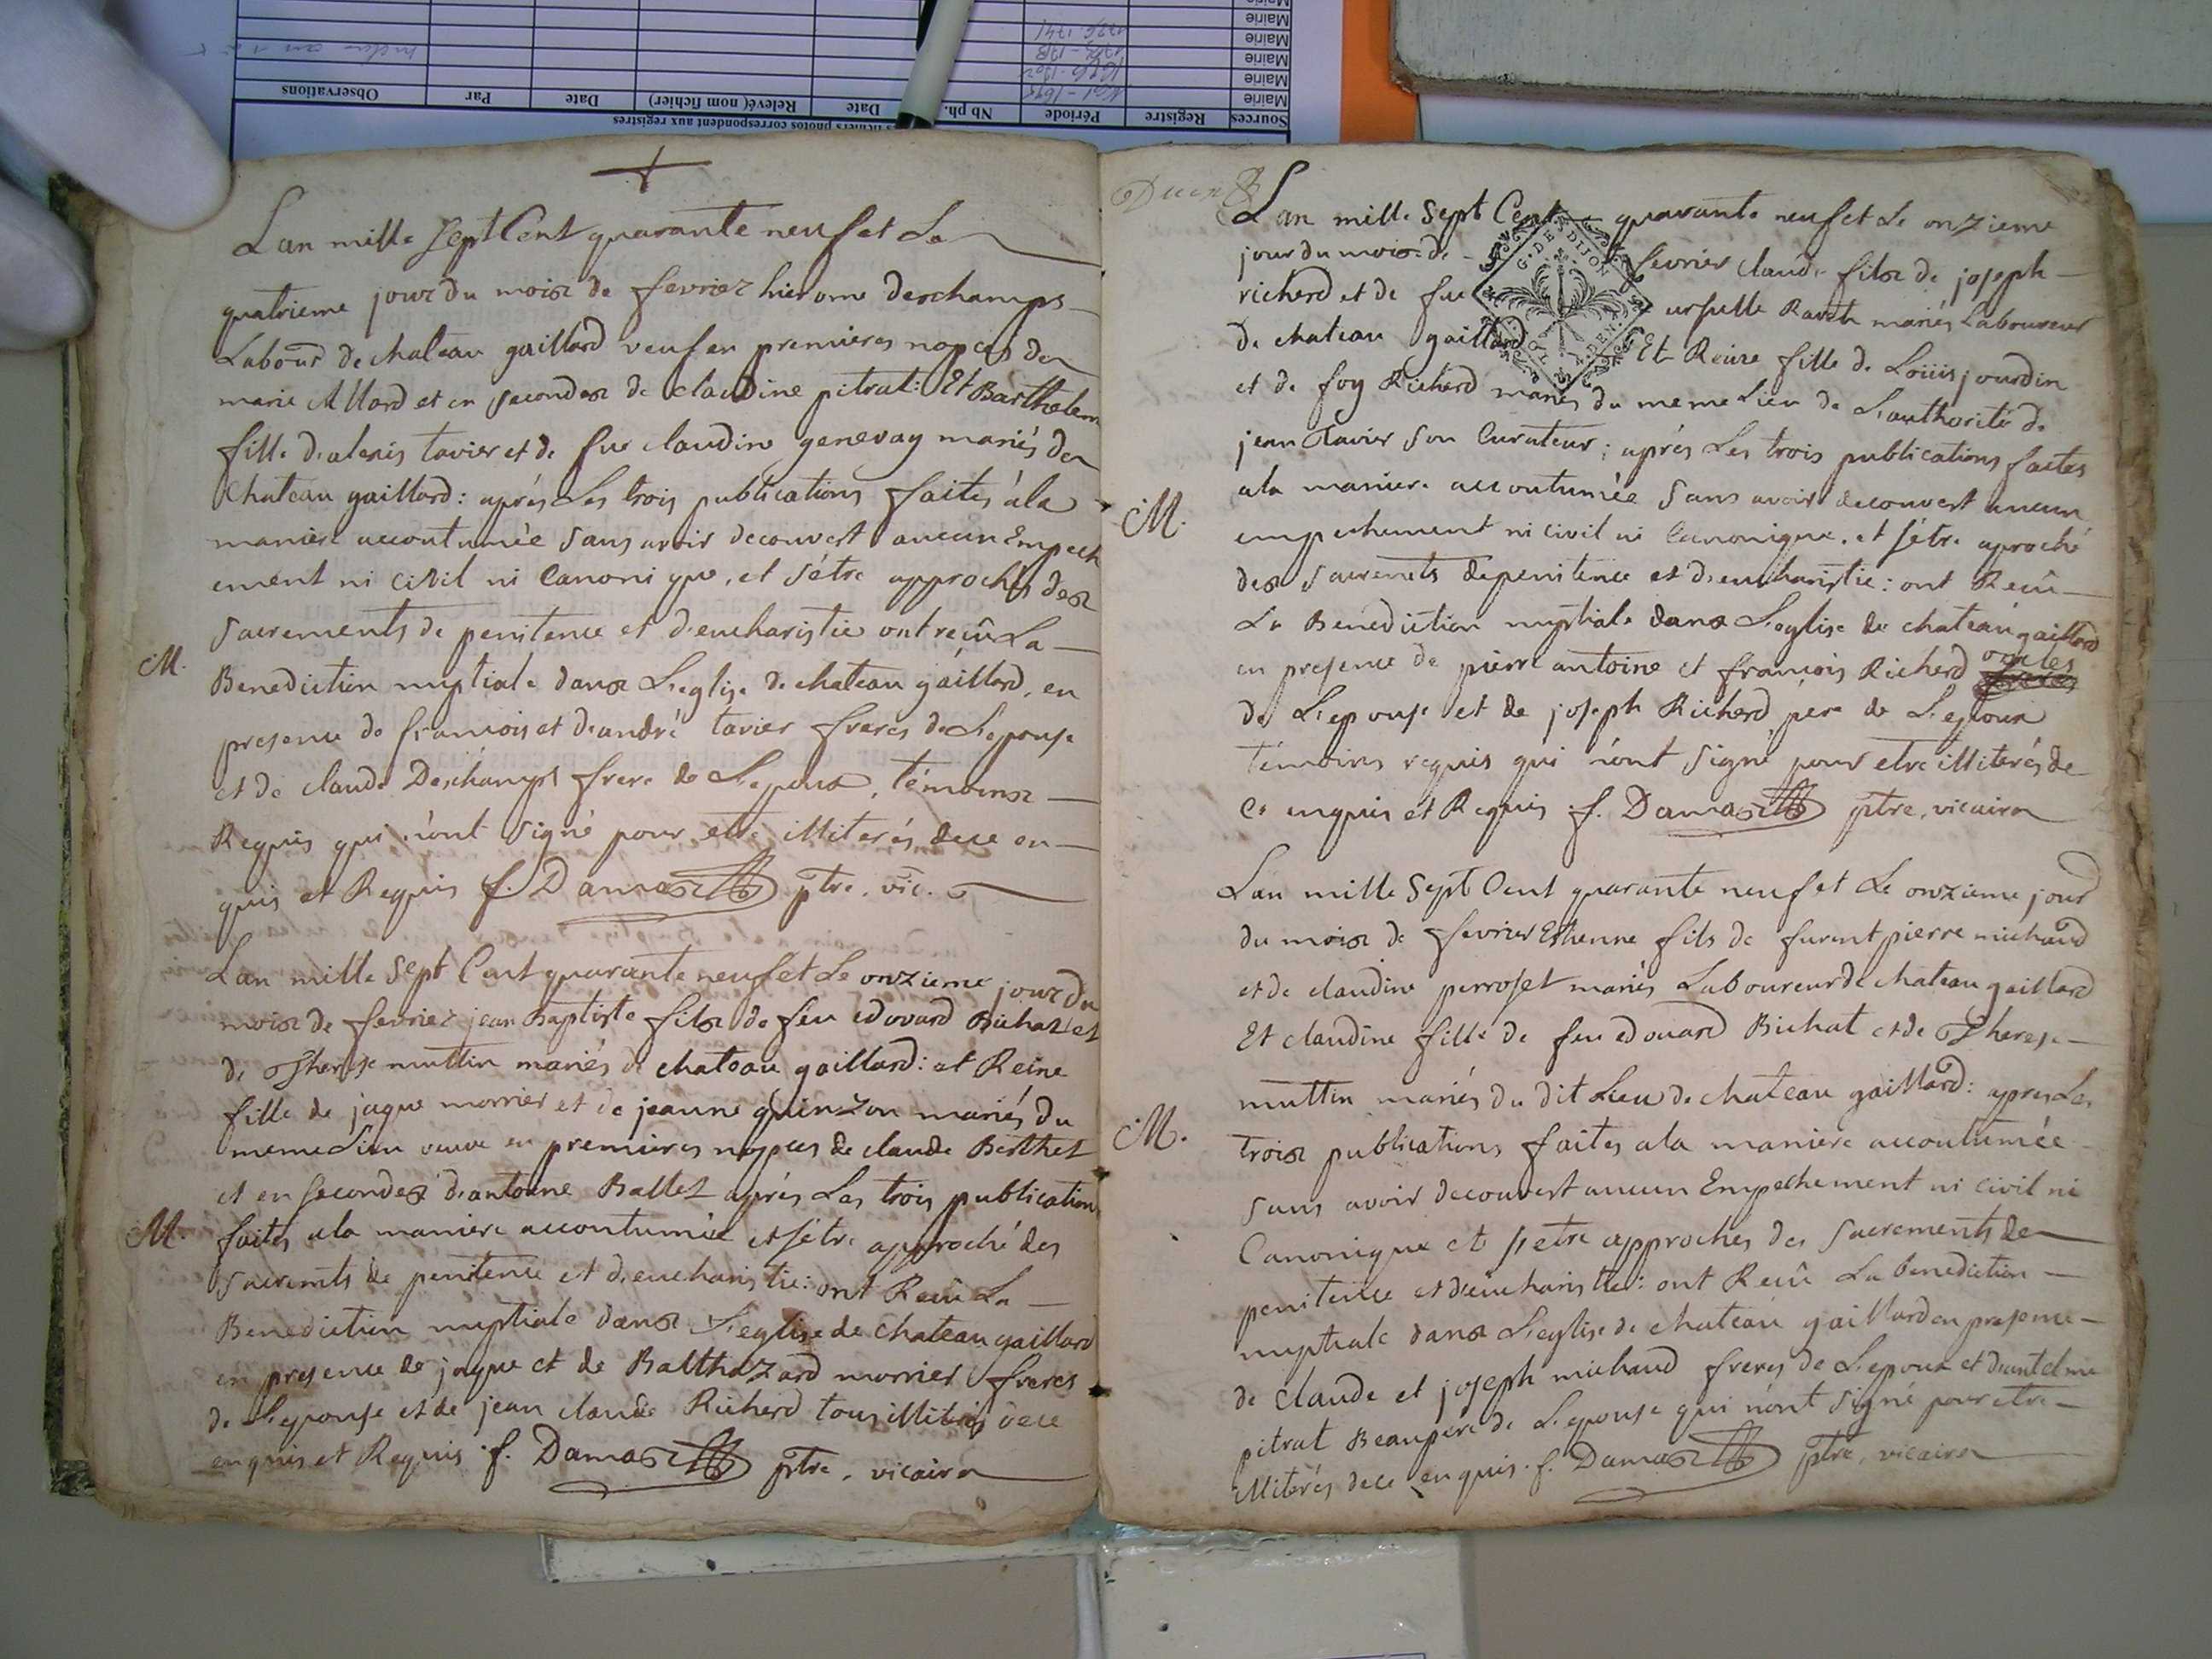 Sources Registre Période Nb ph. Date Relevé( nom fichier) Date Par Observations
Mairie
Mairie
Mairie
Mairie
Mairie
photos correspondent aux registres
Lan mille sept Cent quarante neuf et Le
quatrieme jour du mois de fevrier hierome deschamps
Labour de chateau gaillard veuf en premieres nopces de
marie Allard et en secondes de claudine pitrat: Et Barthelem
fille d'alexis tavier et de fue claudine genevay mariés de
Chateau gaillard: aprés Les trois publications faites à la
maniere accoutumée sans avoir decouvert aucun Empech
ement ni civil ni Canonique, et s'étre approchés des
sacrements de penitence et d'eucharistie ont reçû La
M.
Benediction nuptiale dans L'eglise de chateau gaillard, en
presence de francois et d'andré tavier freres de L'epouse
et de claude Deschamps frere de L'epoux, témoins
Requis qui n'ont signé pour etre illiterés de ce en
quis et Requis f. Damas ptre. vic.
Lan mille sept Cent quarante neuf et Le onzieme jour du
mois de fevrier jean Baptiste fils de feu edouard Bichat et
de Therese muttin mariés de chateau gaillard: et Reine
fille de jaque morrier et de jeanne guinzon mariés du
meme Lieu veuve en premieres nopces de claude Berthet
et en secondes d'antoine Ballet aprés Les trois publication
M.
faites a la maniere accoutumée et s'étre approché des
sacremts de penitence et d'eucharistie: ont Reçû La
Benediction nuptiale dans L'eglise de Chateau gaillard
en presence de jaque et de Balthazard morrier freres
de L'epouse et de jean claude Richerd tous illiterés de ce
enquis et Requis f. Damas ptre, vicaire
Lan mille sept Cent quarante neuf et Le onzieme
jour du mois de fevrier claude fils de joseph
richerd et de fue ursulle Ravet mariés Laboureur
G. DE DIJON
de chateau gaillard Et Reine fille de Loüis jourdin
et de foy Richerd mariés du meme Lieu de L'authorité de
jean Tavier son Curateur; aprés Les trois publications faites
a la maniere accoutumée sans avoir decouvert aucun
M.
empechement ni civil ni Canonique, et s'étre aproché
des sacremts de penitence et d'eucharistie: ont Reçû
La Benediction nuptiale dans L'eglise de chateau gaillard
en presence de pierre antoine et francois Richerd oncles
de L'epouse et de joseph Richerd pere de L'epoux
témoins requis qui n'ont signé pour etre illiterés de
ce enquis et Requis f. Damas ptre, vicaire
Lan mille sept Cent quarante neuf et Le onzieme jour
du mois de fevrier Estienne fils de furent pierre michaud
et de claudine perroset mariés Laboureur de chateau gaillard
Et claudine fille de feu edouard Bichat et de Therese
muttin mariés du dit Lieu de chateau gaillard: apres Les
M.
trois publications faites a la maniere accoutumée
sans avoir decouvert aucun Empechement ni civil ni
Canonique et s'etre approchés des sacrements de
penitence et d'eucharistie: ont Reçû La benediction
nuptiale dans L'eglise de chateau gaillard en presence
de claude et joseph michaud freres de L'epoux et d'antelme
pitrat Beaupere de L'epouse qui n'ont signé pour etre
illiterés de ce enquis. f. Damas ptre, vicaire